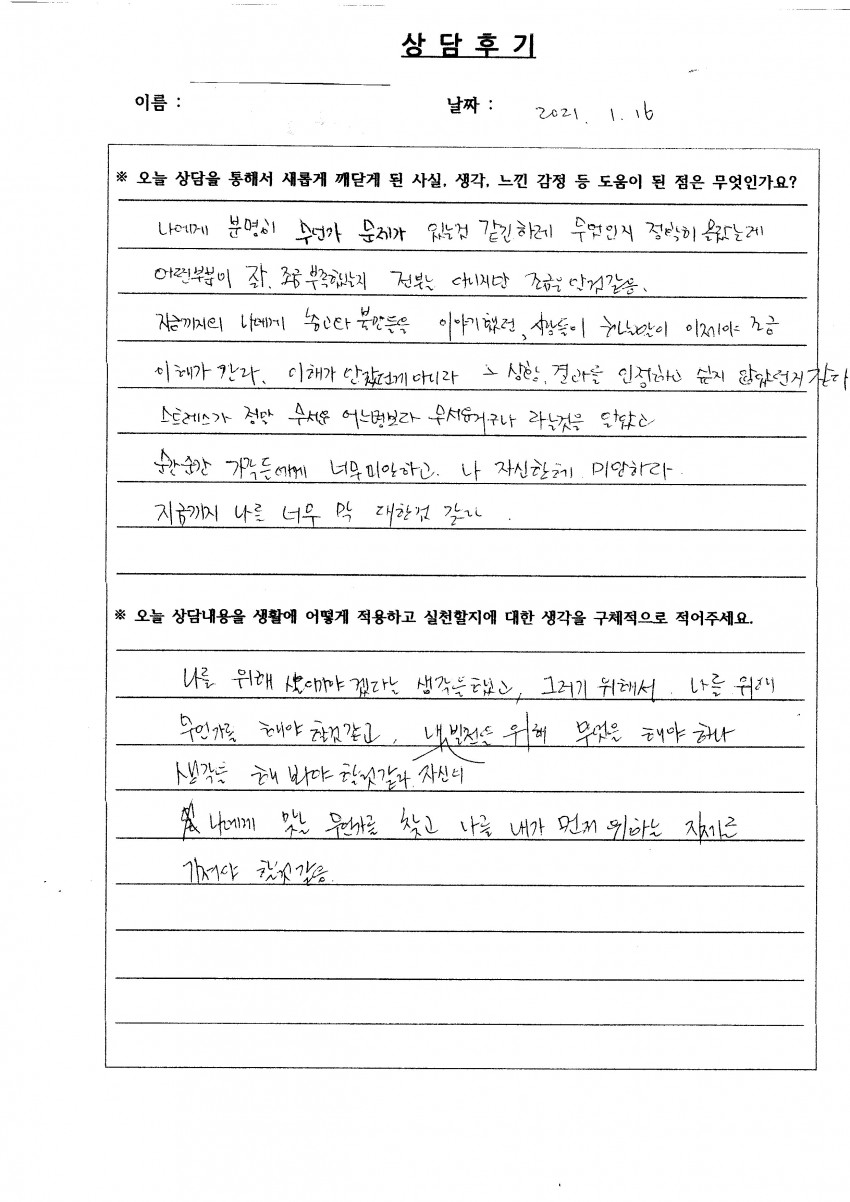 상 담 후 기
이름 :
날짜 : 2021. 1. 16
※ 오늘 상담을 통해서 새롭게 깨닫게 된 사실, 생각, 느낀 감정 등 도움이 된 점은 무엇인가요?
나에게 분명히 무언가 문제가 있는것 같긴하레 무엇인지 정확히 몰랐는데
어떤부분이 잘, 조금 부족했는지 전부는 아니지만 조금은 안것같음.
지금까지의 나에게 충고와 불만들을 이야기했던, 사람들이 하는말이 이제야 조금
이해가 간다. 이해가 안갔던게 아니라 그 상황, 결과를 인정하고 싶지 않았던거 같다
스트레스가 정말 무서운 어느병보다 무서운거구나 라는것을 알았고
순간순간 가족들에게 너무미안하고. 나 자신한테 미안하다.
지금까지 나를 너무 막 대한것 같다.
※ 오늘 상담내용을 생활에 어떻게 적용하고 실천할지에 대한 생각을 구체적으로 적어주세요.
나를 위해 살아가야 겠다는 생각을했고, 그러기 위해서. 나를 위해
무언가를 해야 할것같고, 내 발전을 위해 무엇을 해야 하나
생각을 해 봐야 할것같다. 자신의
나에게 맞는 무언가를 찾고 나를 내가 먼저 위하는 자세를
가져야 할것같음.